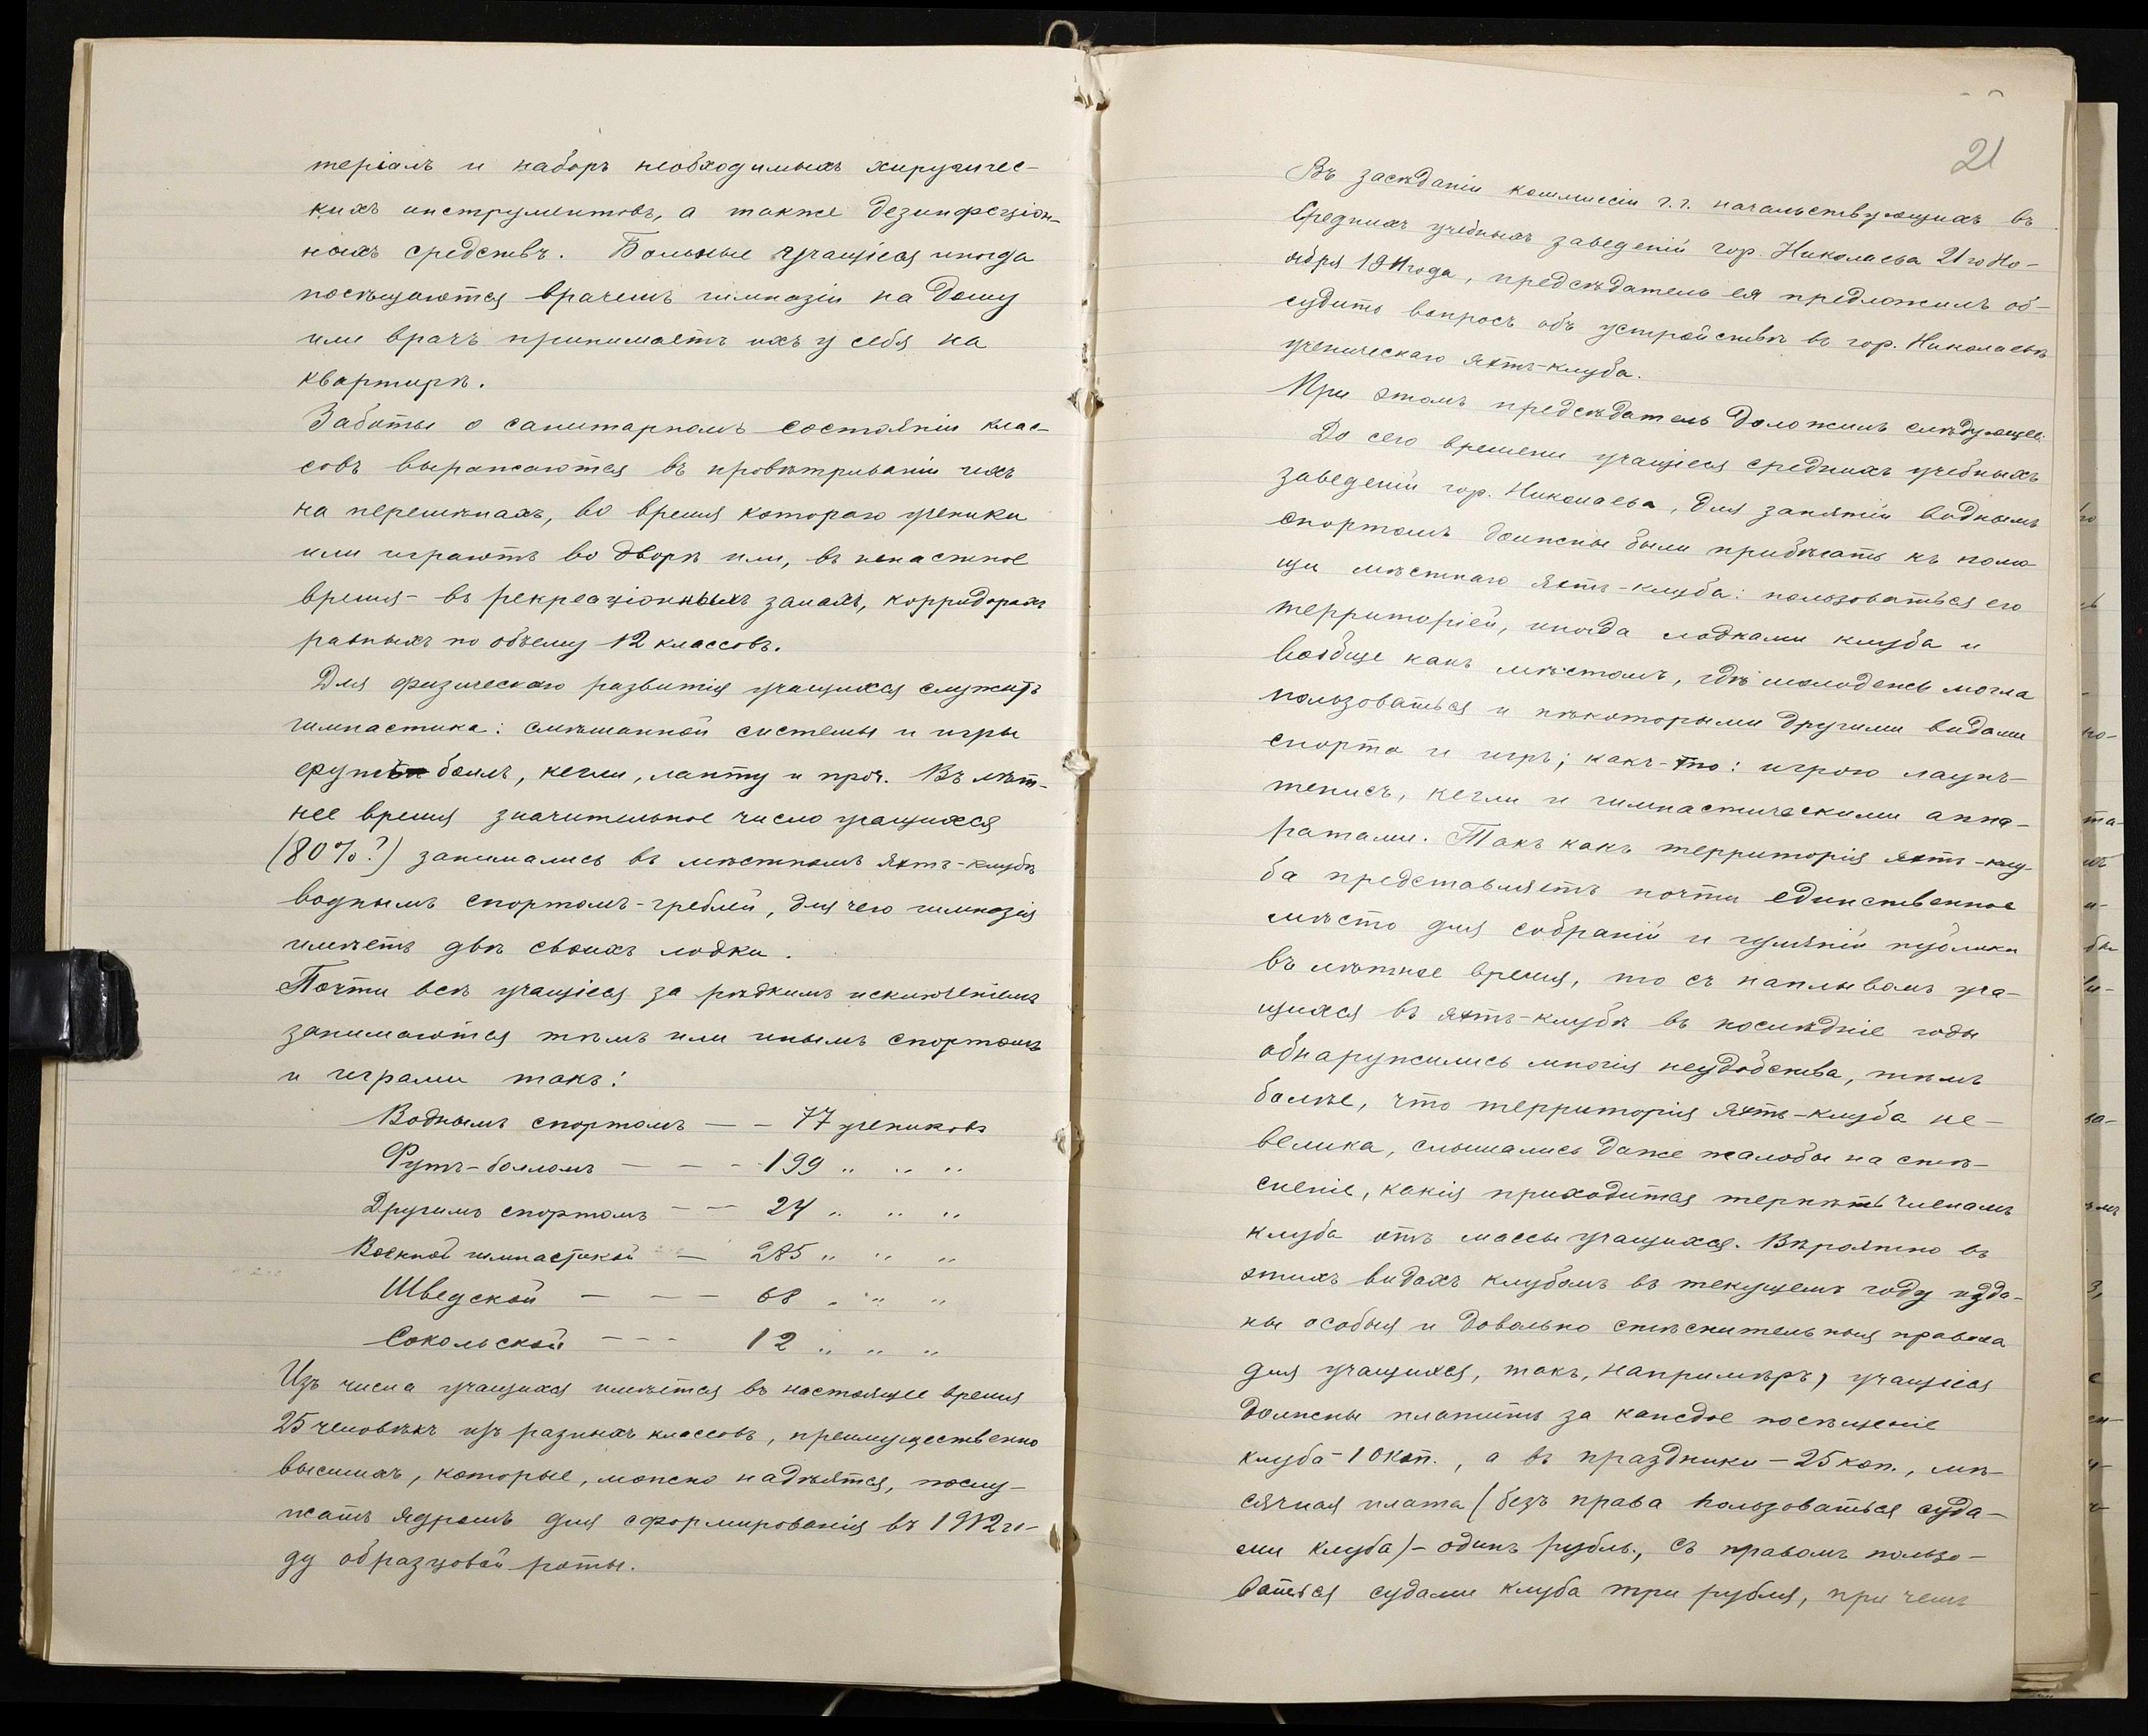 теріалъ и наборъ необходимыхъ хирургичес-
кихъ инструментовъ, а также дезинфекціон-
ныхъ средствъ. Больные учащіеся иногда
посѣщаются врачемъ гимназіи на дому
или врачъ принимаетъ ихъ у себя на
квартирѣ.
Заботы о санитарномъ состояніи клас-
совъ выражаются въ провѣтриваніи ихъ
на перемѣнахъ, во время котораго ученики
или играютъ во дворѣ или, въ ненастное
время - въ рекреаціонныхъ залахъ, корридорахъ
равныхъ по объему 12 классовъ.
Для физическаго развитія учащихся служитъ
гимнастика: смѣшанной системы и игры
футъ болъ, кегли, лапту и проч. Въ лѣт-
нее время значительное число учащихся
(80%?) занимались въ мѣстномъ яхтъ-клубѣ
воднымъ спортомъ-греблей, для чего гимназія
имѣетъ двѣ своихъ лодки.
Почти всѣ учащіеся за рѣдкимъ исключеніемъ
занимаются тѣмъ или инымъ спортомъ
и играми такъ:
Воднымъ спортомъ — – 77 учениковъ
Футъ-боломъ — — - 199 „ „ „
Другимъ спортомъ – — 24 „ „ „
Военной гимнастикой — 285 „ „ „
Шведской — — — 68 „ „ „
Сокольской – – – 12 „ „ „
Изъ числа учащихся имѣется въ настоящее время
25 человѣкъ изъ разныхъ классовъ, преимущественно
высшихъ, которые, можно надѣятся, послу-
жатъ ядромъ для сформированія въ 1912 го-
ду образцовой роты.
21
Въ засѣданіи коммиссіи г.г. начальствующихъ въ
среднихъ учебныхъ заведеній гор. Николаева 21го Но-
ября 1911 года, предсѣдатель ея предложилъ об-
судить вопросъ объ устройствѣ въ гор. Николаевѣ
ученическаго яхтъ-клуба.
При этомъ предсѣдатель доложилъ слѣдующее:
До сего времени учащіеся среднихъ учебныхъ
заведеній гор. Николаева, для занятій воднымъ
спортомъ должны были прибѣгать къ помо
щи мѣстнаго яхтъ-клуба: пользоваться его
территоріей, иногда лодками клуба и
вообще какъ мѣстомъ, гдѣ молодежь могла
пользоваться и нѣкоторыми другими видами
спорта и игръ; какъ-то: игрою лаунъ-
тенисъ, кегли и гимнастическими аппа-
ратами. Такъ какъ территорія яхтъ-клу-
ба представляетъ почти единственное
мѣсто для собраній и гуляній публики
въ лѣтнее время, то съ наплывомъ уча-
щихся въ яхтъ-клубѣ въ послѣдніе годы
обнаружились многія неудобства, тѣмъ
болѣе, что территорія яхтъ-клуба не-
велика, слышались даже жалобы на стѣ-
сненіе, какія приходится терпѣть членамъ
клуба отъ массы учащихся. Вѣроятно въ
этихъ видахъ клубомъ въ текущемъ году изда-
ны особыя и довольно стѣснительныя правила
для учащихся, такъ, напримѣръ, учащіеся
должны платить за каждое посѣщеніе
клуба - 10 коп., а въ праздники - 25 коп., мѣ-
сячная плата (безъ права пользоваться суда-
ми клуба) - одинъ рубль., съ правомъ пользо-
ваться судами клуба три рубля, при чемъ